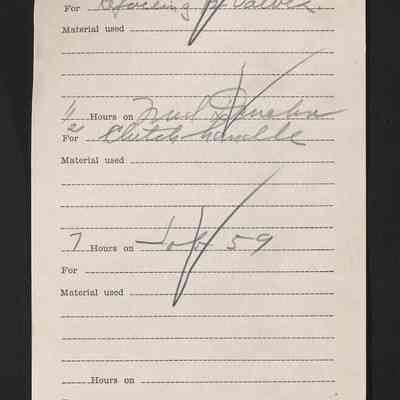 For Refacing of Valves.
Material used
1/2 Hours on Fred
For Clutch handle
Material used
7 Hours on Job 59
For
Material used
Hours on